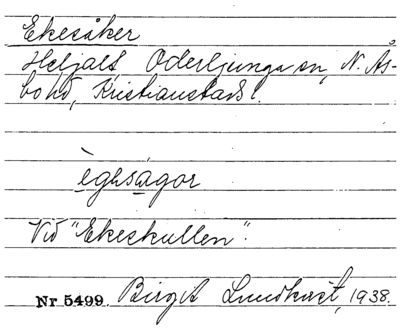 Ekesåker
Heljalt, Oderljunga sn, N. Ås-
bo hd, Kristianstads l.
ègəsagor
Vid "Ekeskullen".
Nr 5499. Birgit Lundkvist, 1938.